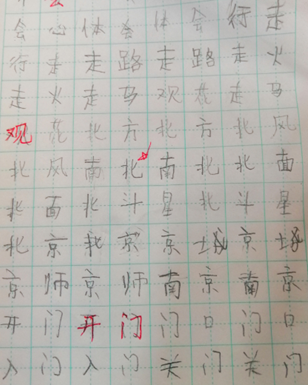 会心体会体会行走
行走走路走路走火
走火走马观花走马
观花北方北方北风
北风南北南北北面
北面北斗星北斗星
北京北京京城京城
京师京师南京南京
开门开门门口门口
入门入门关门关门